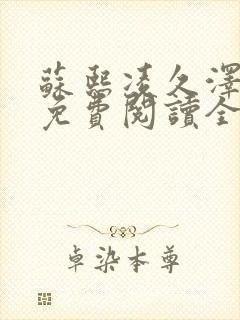 蘇熙凌久澤
免費閱讀全
卓染本尊